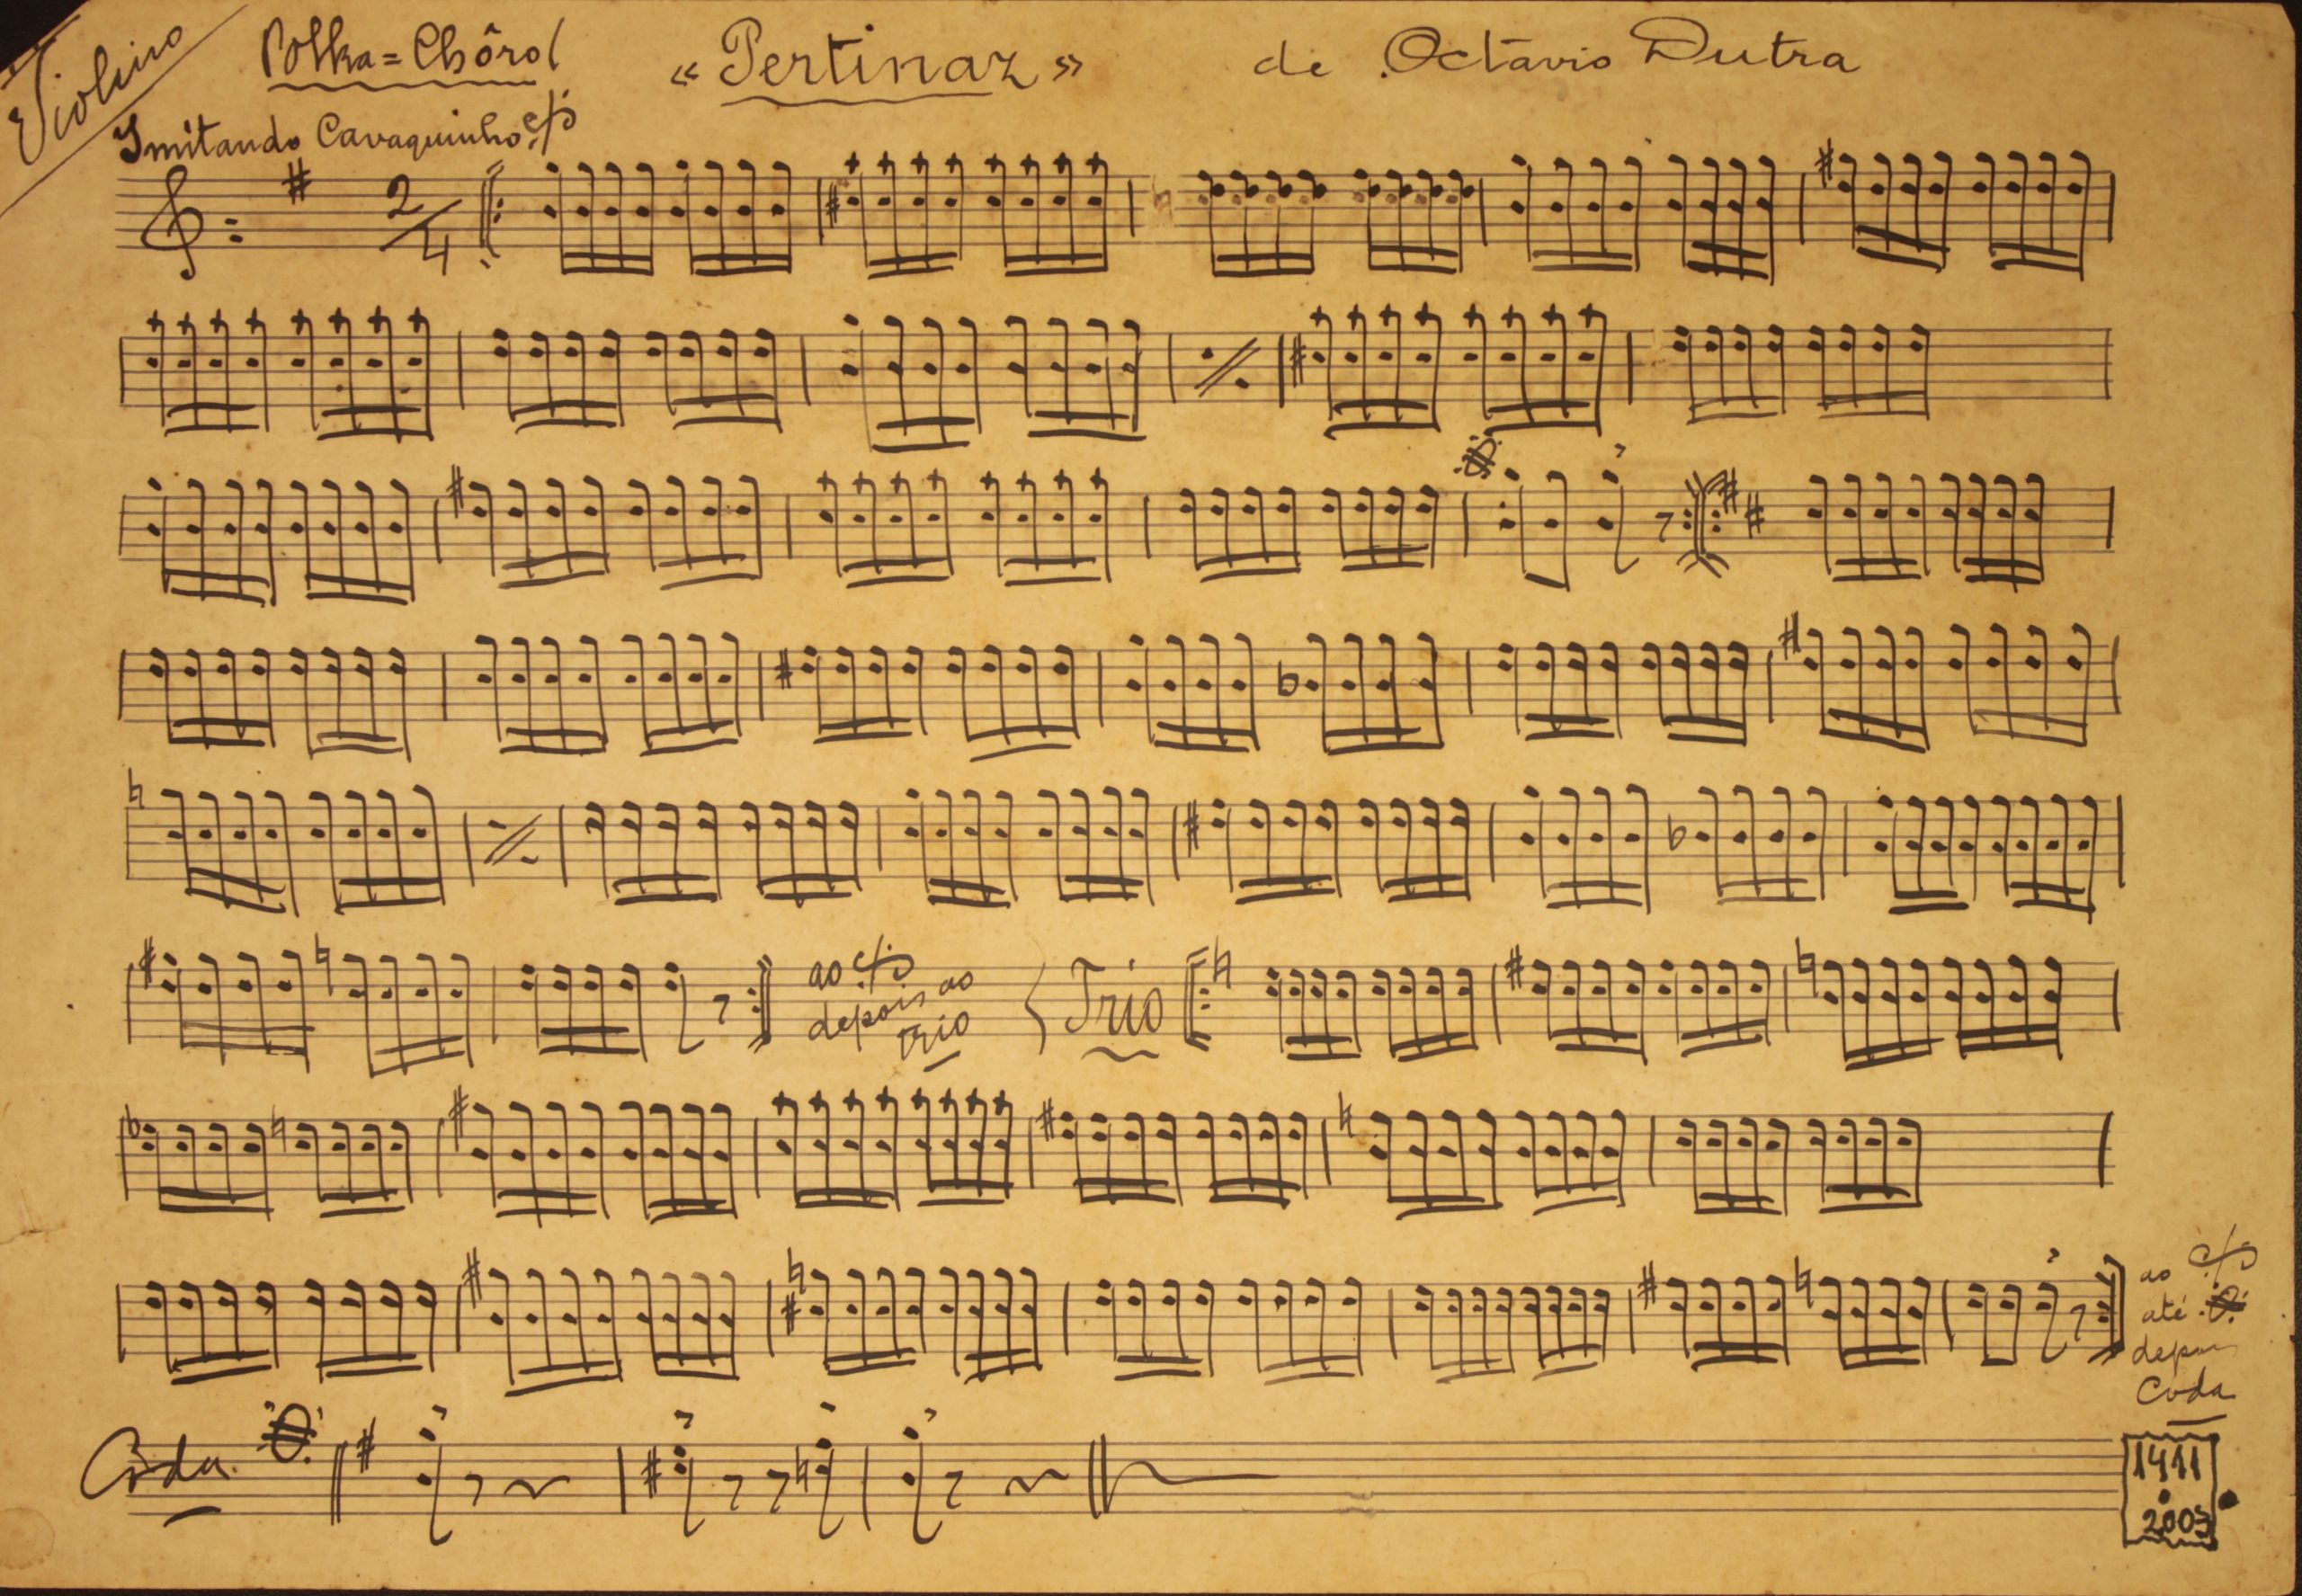 Violino
Polka=Chôro
« Pertinaz »
de Octavio Dutra
Imitando Cavaquinho
2/4
ao
depois ao
trio
Trio
ao
até
depois
Coda
Coda
1411
2003